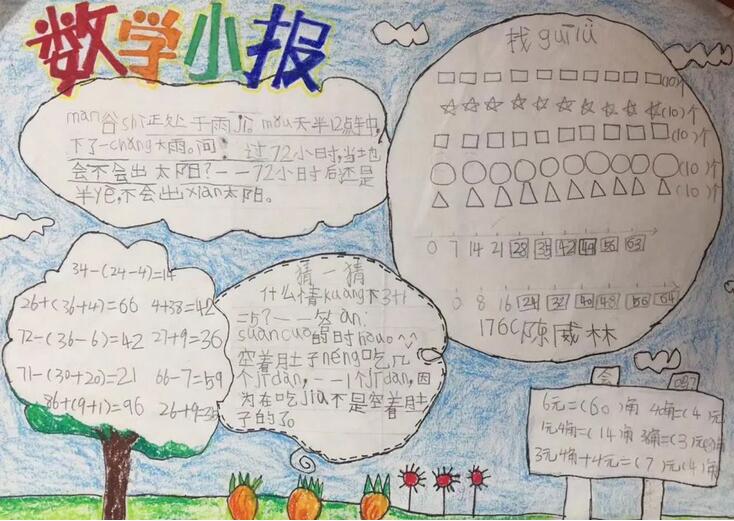 数学小报
màn谷shì正处于雨jì。mǒu天半夜12点钟,
下了一cháng大雨。问:过72小时,当地
会不会出太阳?——72小时后还是
半夜,不会出xiàn太阳。
找guīlǜ
(10)个
(10)个
(10)个
(10)个
(10)个
0 7 14 21 28 35 42 49 56 63
0 8 16 24 32 40 48 56 64
176C陈威林
34-(24-4)=14
26+(36+4)=66 4+38=42
72-(36-6)=42 27+9=36
71-(30+20)=21 66-7=59
86+(9+1)=96 26+9=35
猜一猜
什么情kuàng下3+1
=5?——答àn:
suàncuò的时hou。
空着肚子néng吃几
个jīdàn,——1个jīdàn,因
为在吃jiù不是空着肚
子的了。
会
6元=(60)角 4角=(4)元
1元4角=(14)角 3角=(3)元
3元4角+4元=(7)元(4)角